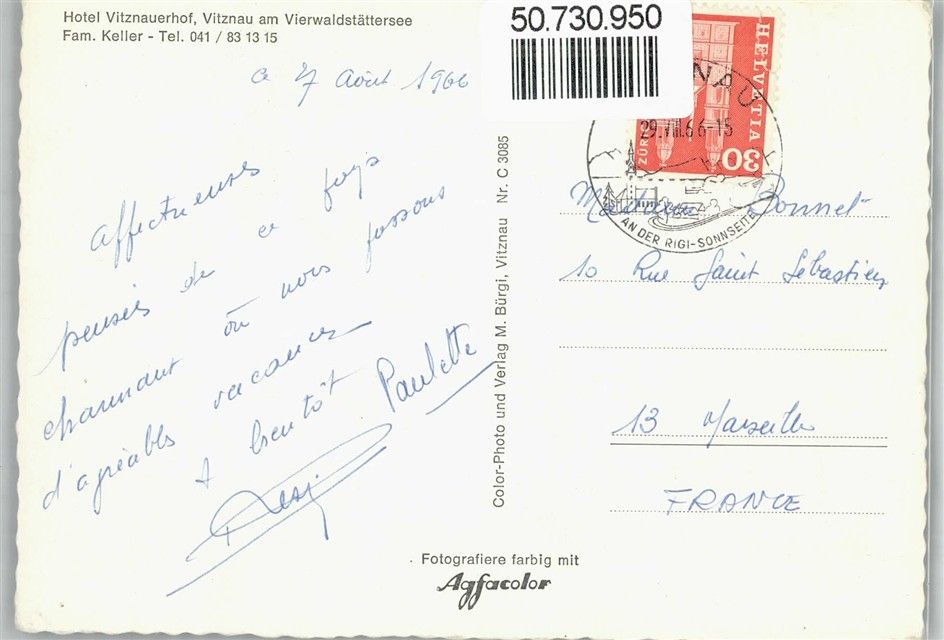 Hotel Vitznauerhof, Vitznau am Vierwaldstättersee
Fam. Keller - Tel. 041 / 83 13 15
50.730.950
ce 27 Août 1966
affectueuses
pensées de ce pays
charmant où nous passons
d'agréables vacances
A bientôt Paulette
Color-Photo und Verlag M. Bürgi, Vitznau Nr. C 3085
HELVETIA
30
ZÜRI
NAU
29.VIII.66-15
AN DER RIGI-SONNSEITE
Bonnet
10 Rue Saint Sébastien
13 Marseille
FRANCE
Fotografiere farbig mit
Agfacolor